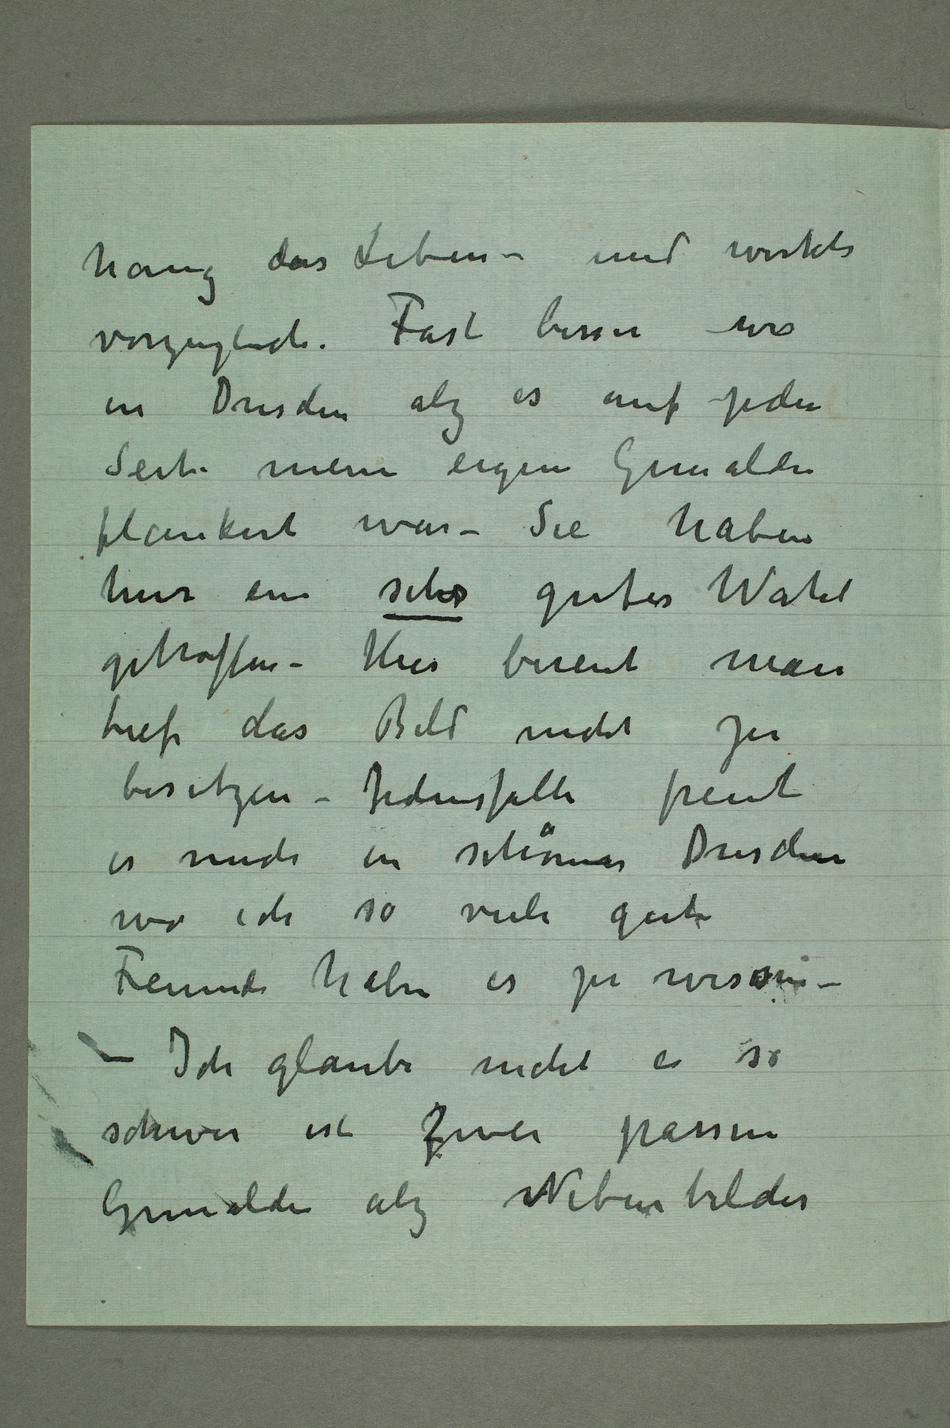 hang das Leben – und wirkte
vorzuglich. Fast besser wo
in Dresden alz es auf jeden
Seite meine eigen Gemälden
flankiert war – Sie haben
hier ein sehr gutes Wahl
getroffen – Hier bereut man
tief das Bild nicht zu
besitzen – Jedenfalls freut
es mich in schönes Dresden
wo ich so viele gute
Freunde haben es zu wissen –
– Ich glaube nicht es so
schwer ist Zwei passen
Gemälde alz Nebenbilder